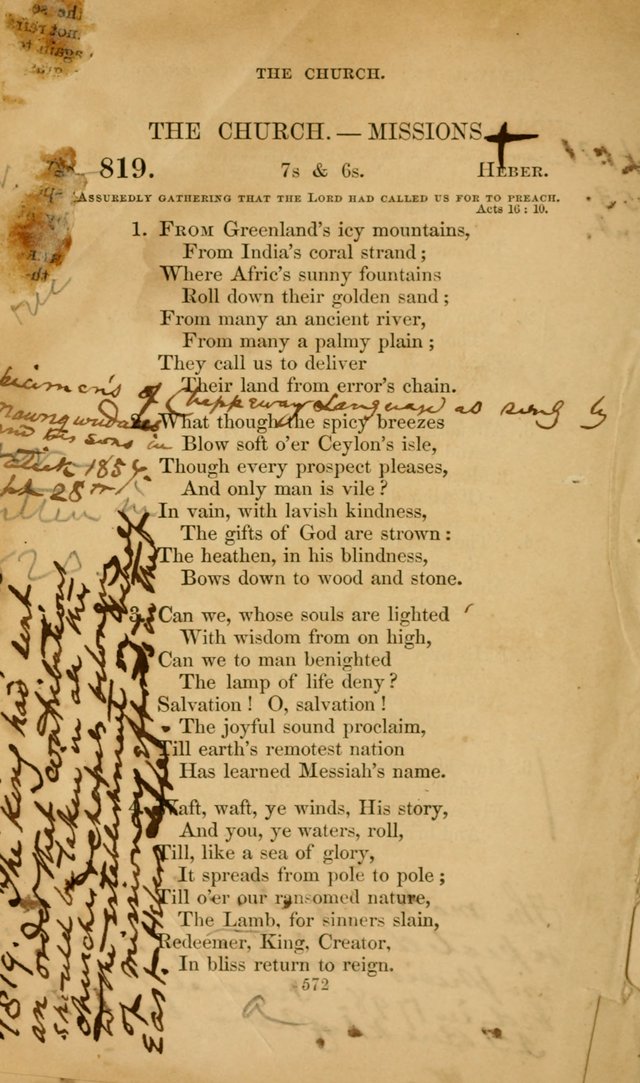 THE CHURCH.
THE CHURCH. — MISSIONS
819. 7s & 6s. HEBER.
ASSUREDLY GATHERING THAT THE LORD HAD CALLED US FOR TO PREACH.
Acts 16 : 10.
1. FROM Greenland's icy mountains,
From India's coral strand ;
Where Afric's sunny fountains
Roll down their golden sand ;
From many an ancient river,
From many a palmy plain ;
They call us to deliver
Their land from error's chain.
of Chippeway Language as sung by
and his sons in
1854.
2. What though the spicy breezes
Blow soft o'er Ceylon's isle,
Though every prospect pleases,
And only man is vile ?
In vain, with lavish kindness,
The gifts of God are strown :
The heathen, in his blindness,
Bows down to wood and stone.
3. Can we, whose souls are lighted
With wisdom from on high,
Can we to man benighted
The lamp of life deny ?
Salvation ! O, salvation !
The joyful sound proclaim,
Till earth's remotest nation
Has learned Messiah's name.
4. Waft, waft, ye winds, His story,
And you, ye waters, roll,
Till, like a sea of glory,
It spreads from pole to pole ;
Till o'er our ransomed nature,
The Lamb, for sinners slain,
Redeemer, King, Creator,
In bliss return to reign.
572
1819. The King had sent
an order that contributions
should be taken in all the
churches & chapels belonging
to the establishment on behalf
of missionary efforts in the
East. Heber
a